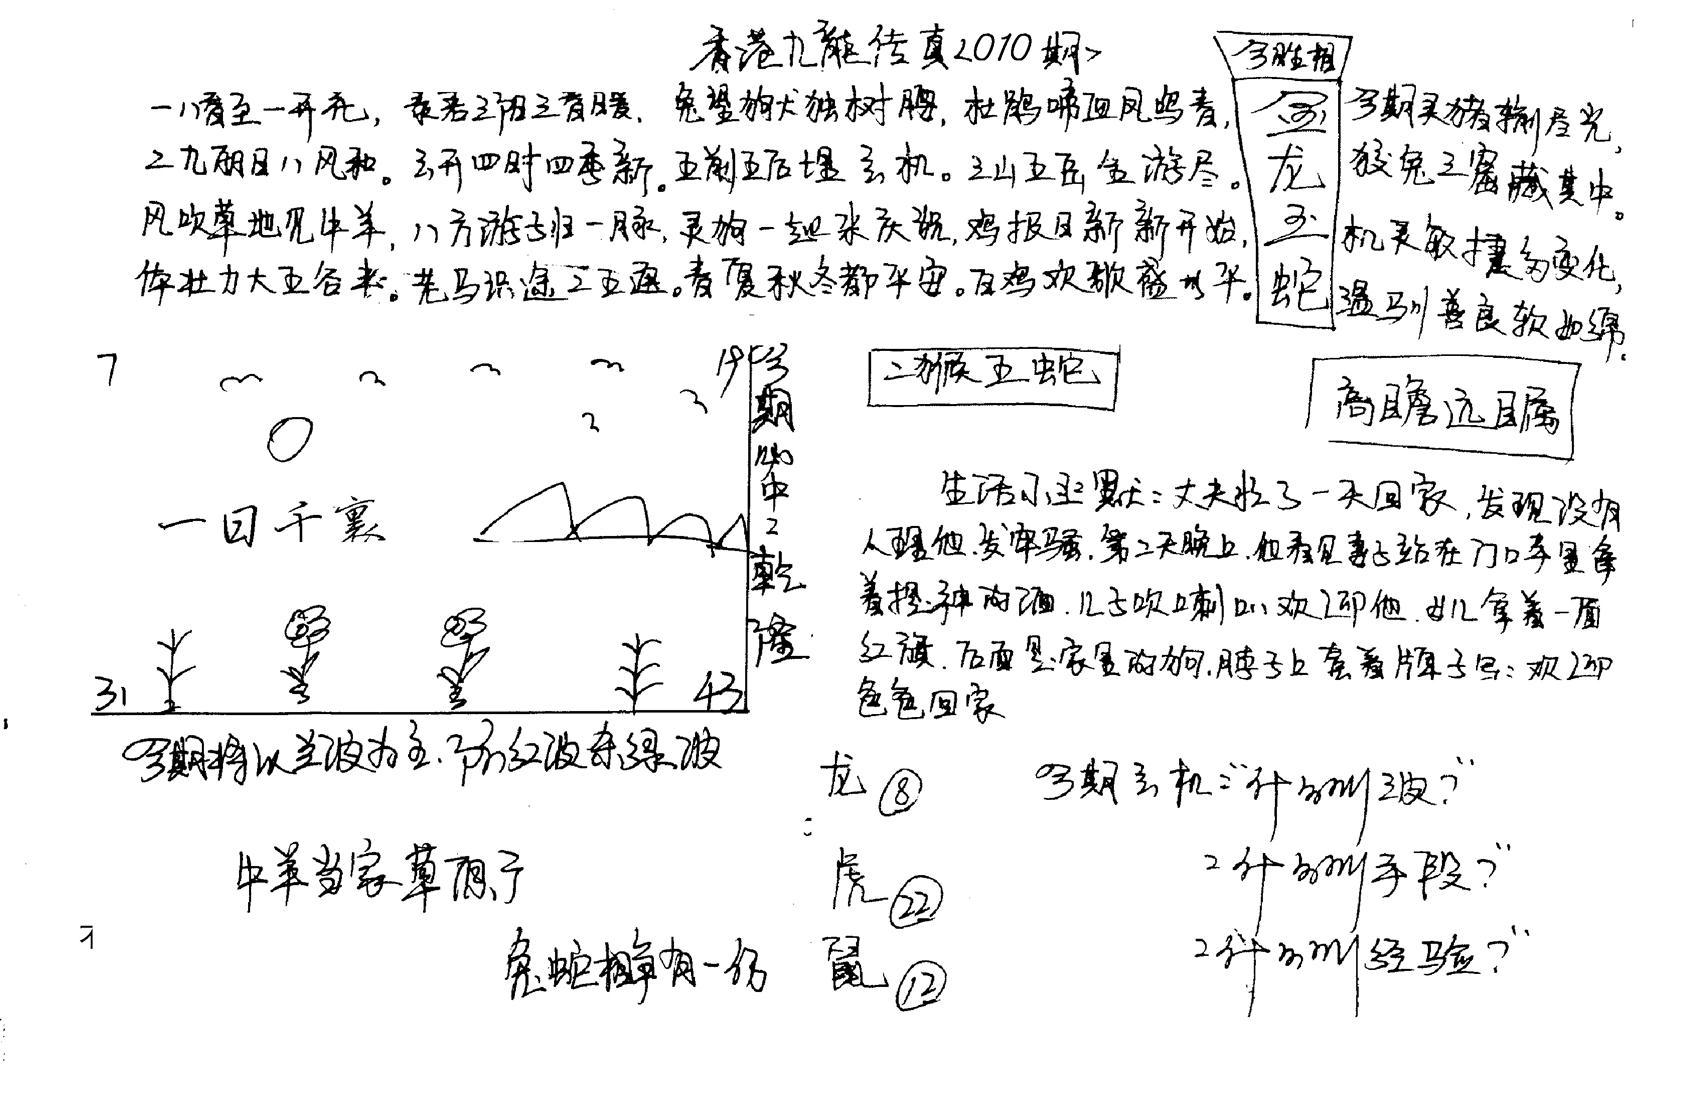 香港九龍传真<2010期>
今期生相
一八春至一开花，来君之阳三春暖，兔望狗犬独树腾，杜鹃啼血风鸣春，
二九丽日八风和。云开四时四季新。五前五后埋玄机。三山五岳金游尽。
风吹草地见牛羊，八方游子归一脉，灵狗一起来庆祝，鸡报日新新开始，
体壮力大五谷丰。老马识途二五通。春夏秋冬都平安。百鸡欢歌盛太平。
龙
蛇
今期灵猪输尽光，
狡兔三窟藏其中。
机灵敏捷多变化，
温驯善良软如绵.
7
19
一日千裏
31
43
今期
中
乾
隆
二猴五蛇
高瞻远瞩
生活小幽默:丈夫忙了一天回家,发现没有
人理他.发牢骚.第二天晚上.他看见妻子站在门口手里拿
着提神的酒.儿子吹喇叭欢迎他.女儿拿着一面
红旗.后面是家里的狗.脖子上套着牌子写:欢迎
爸爸回家
今期将以兰波为主.防红波杀绿波
牛羊当家草原广
兔蛇相争有一份
龙 8
虎 22
鼠 12
今期玄机:"什么叫波?"
什么叫手段?"
什么叫经验?"